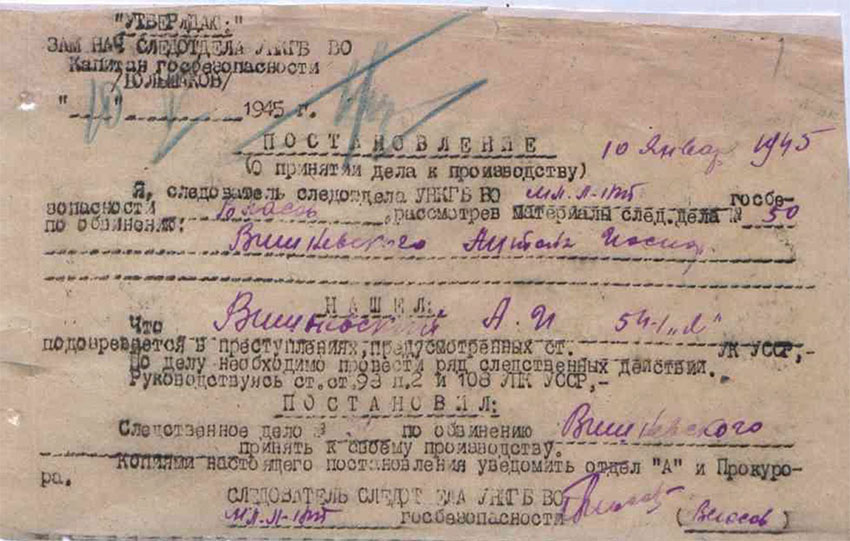 "УТВЕРЖДАЮ:"
ЗАМ НАЧ СЛЕДОТДЕЛА УНКГБ ВО
Капитан госбезопасности
/БОЛЬШАКОВ/
"10" 1945 г.
ПОСТАНОВЛЕНИЕ
10 Январ 1945
(О принятии дела к производству)
Я, следователь следотдела УНКГБ ВО мл. л-нт госбе-
зопасности Власов, рассмотрев материалы след.дела № 50
по обвинению:
Вишневского Антона Иосиф
НАШЕЛ:
Что Вишневский А. И 54-1 „а"
подозревается в преступлениях, предусмотренных ст. УК УССР,-
По делу необходимо провести ряд следственных действий.
Руководствуясь ст.ст.93 п.2 и 108 УПК УССР,-
ПОСТАНОВИЛ:
Следственное дело № по обвинению Вишневского
принять к своему производству.
Копиями настоящего постановления уведомить отдел "А" и Прокуро-
ра.
СЛЕДОВАТЕЛЬ СЛЕДОТДЕЛА УНКГБ ВО
мл. л-нт госбезопасности (Власов)